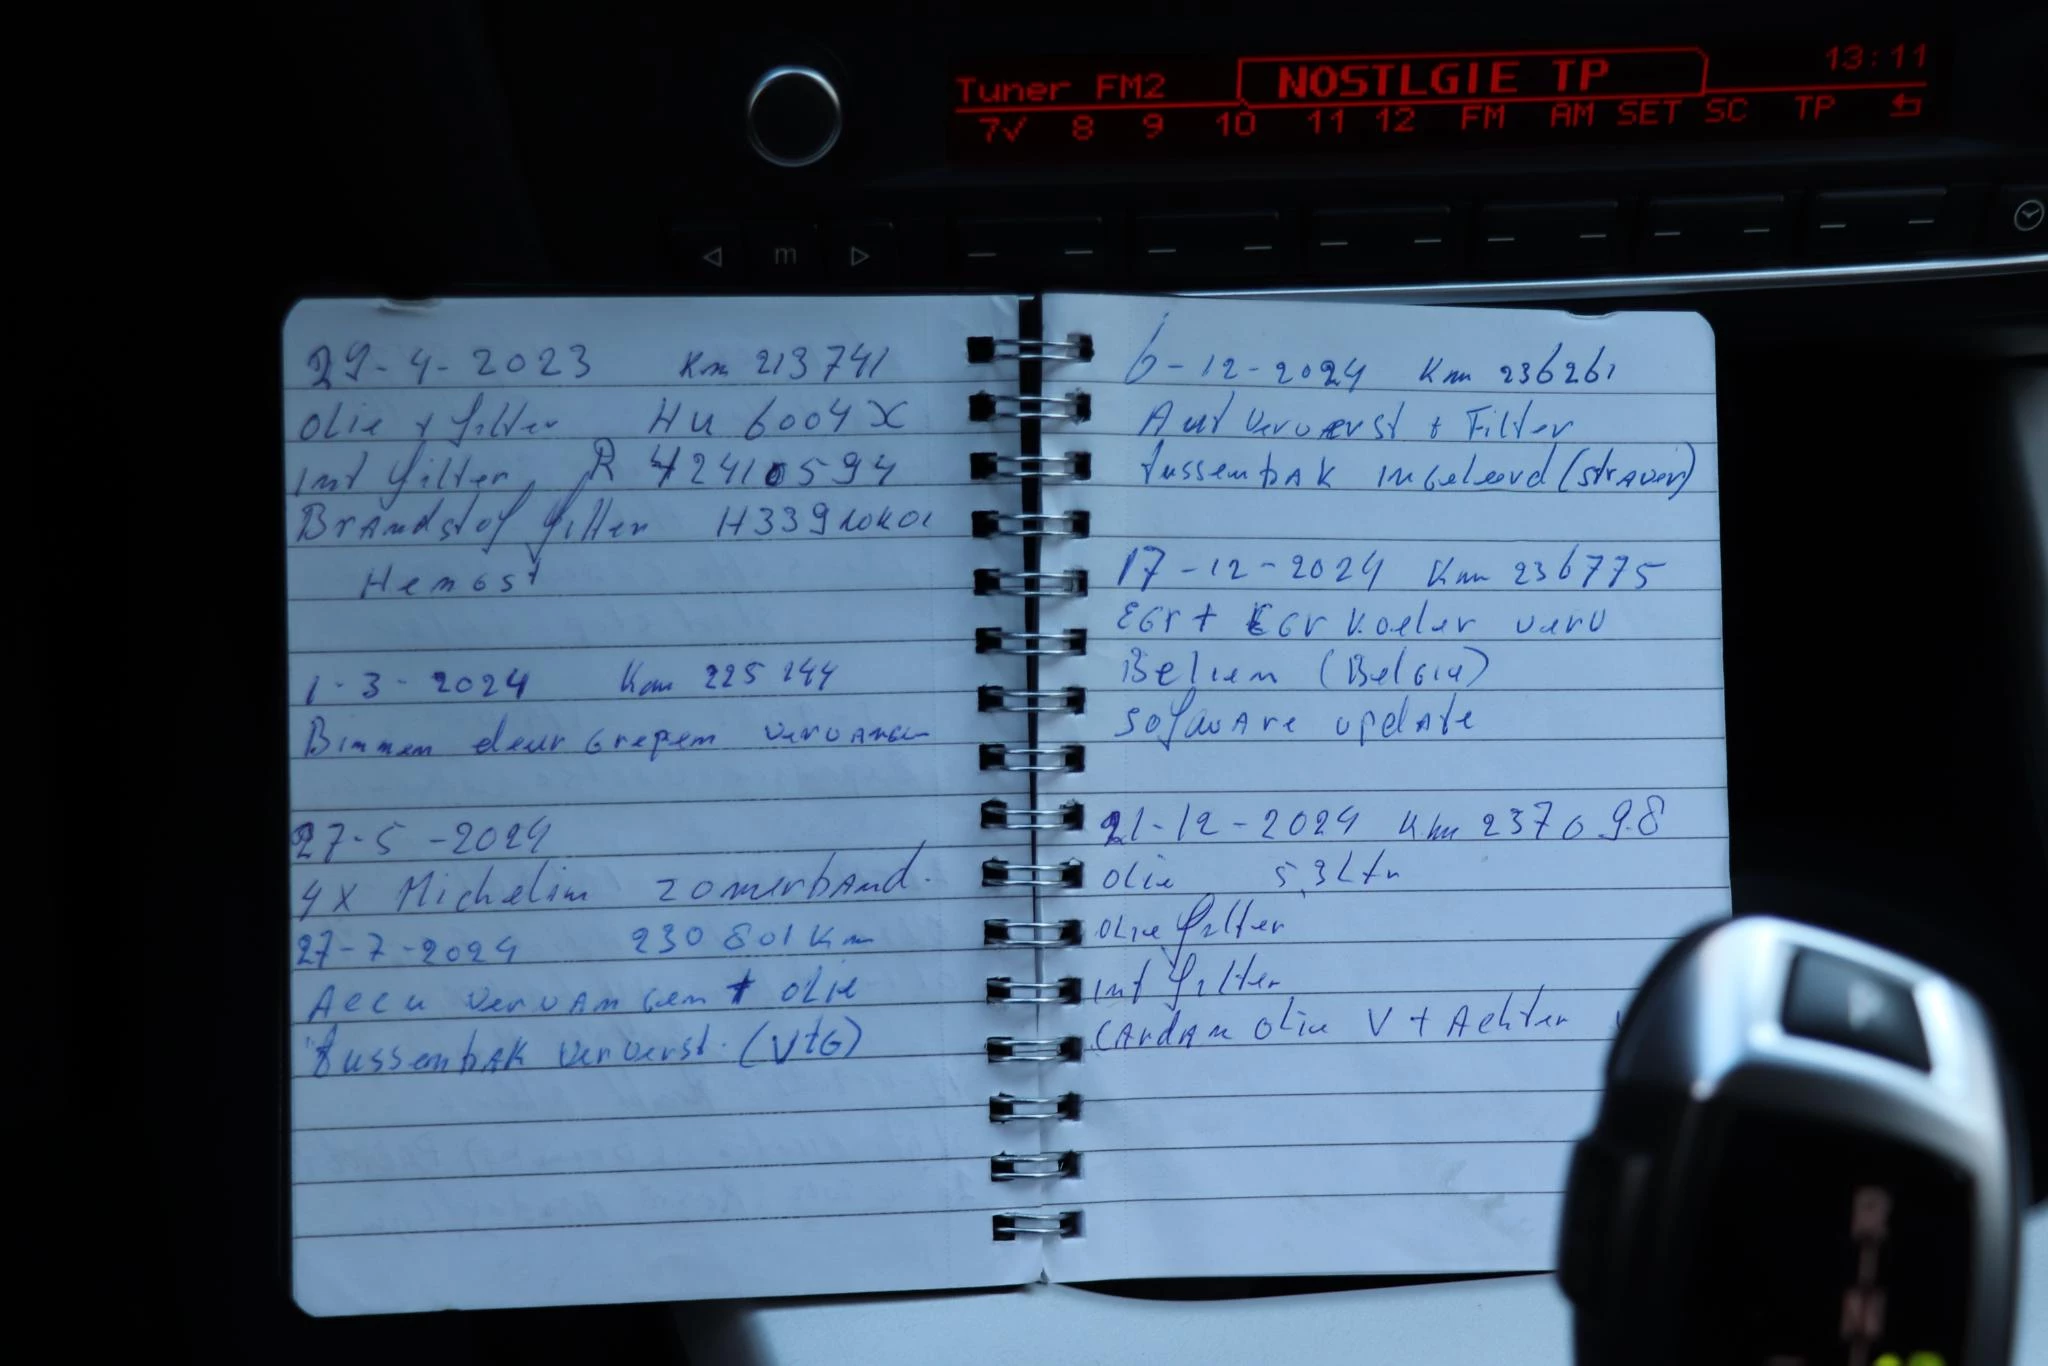 Tuner FM2 NOSTLGIE TP 13:11
7✓ 8 9 10 11 12 FM AM SET SC TP
m
29-4-2023 Km 213741
olie + filter HU 6004 X
int filter R 42410594
Brandstof filter H339WK01
Hengst
1-3-2024 Km 225 144
Binnen deur grepen vervangen
27-5-2024
4x Michelin zomerband.
27-7-2024 230801 Km
Accu vervangen + olie
tussenbak ververst. (VTG)
6-12-2024 Km 236261
Aut ververst + Filter
tussenbak ingeleerd (straver)
17-12-2024 Km 236775
EGr + EGr koeler verv
Belien (Belgie)
Sofware update
21-12-2024 Km 237098
olie 5,3 Ltr
olie filter
int filter
Cardan olie V + Achter
R
N